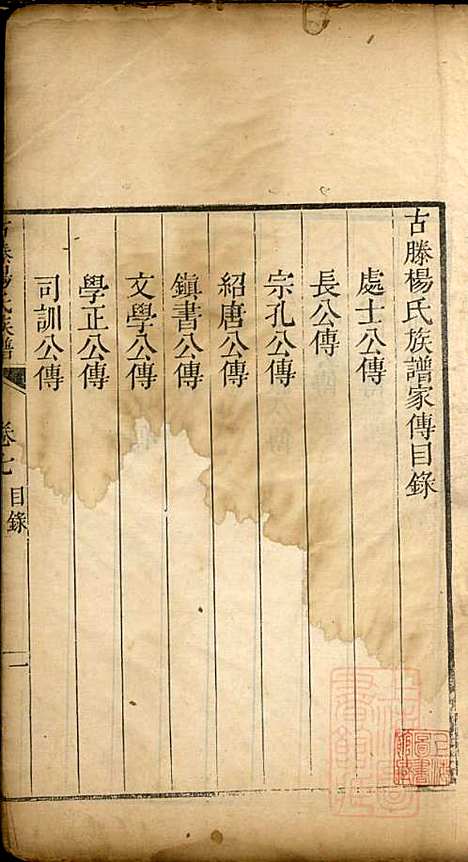 古滕楊氏族譜家傳目錄
處士公傳
長公傳
宗孔公傳
紹唐公傳
鎮書公傳
文學公傳
學正公傳
司訓公傳
古滕楊氏族譜
卷七
目錄
一